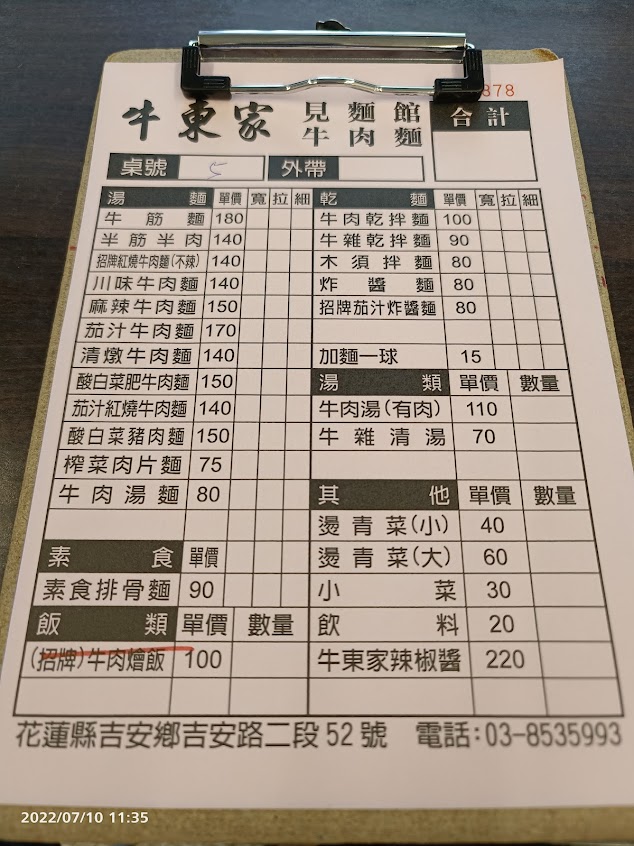 878
牛東家 見麵館 合計
牛肉麵
桌號 5 外帶
湯麵 單價 寬 拉 細
牛筋麵 180
半筋半肉 140
招牌紅燒牛肉麵(不辣) 140
川味牛肉麵 140
麻辣牛肉麵 150
茄汁牛肉麵 170
清燉牛肉麵 140
酸白菜肥牛肉麵 150
茄汁紅燒牛肉麵 140
酸白菜豬肉麵 150
榨菜肉片麵 75
牛肉湯麵 80
素食 單價
素食排骨麵 90
飯類 單價 數量
(招牌)牛肉燴飯 100
乾麵 單價 寬 拉 細
牛肉乾拌麵 100
牛雜乾拌麵 90
木須拌麵 80
炸醬麵 80
招牌茄汁炸醬麵 80
加麵一球 15
湯類 單價 數量
牛肉湯(有肉) 110
牛雜清湯 70
其他 單價 數量
燙青菜(小) 40
燙青菜(大) 60
小菜 30
飲料 20
牛東家辣椒醬 220
花蓮縣吉安鄉吉安路二段52號 電話:03-8535993
2022/07/10 11:35